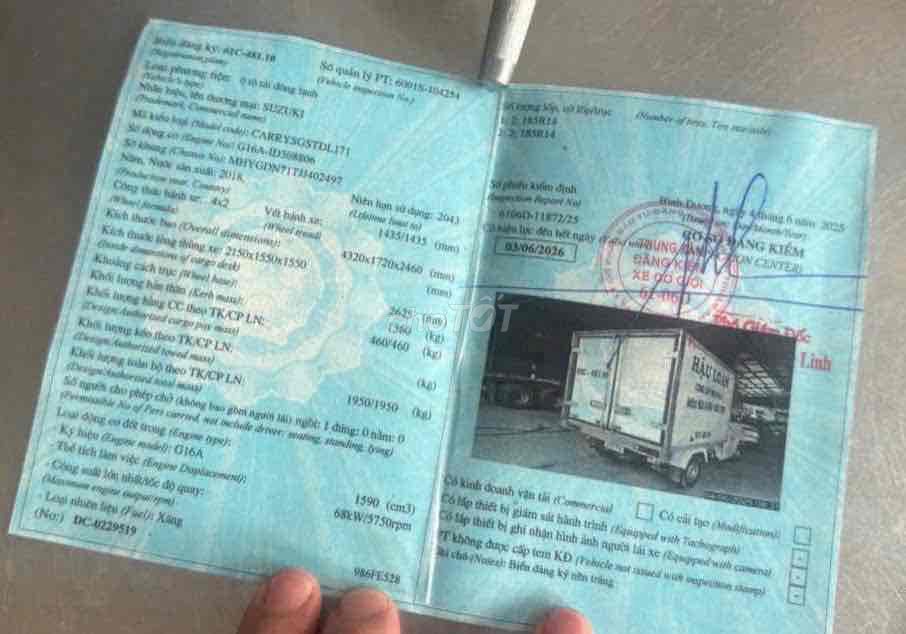 Biển đăng ký: 61C-481.10
(Registration plate)
Số quản lý PT: 6001S-104254
(Vehicle inspection No.)
Loại phương tiện: ô tô tải đông lạnh
(Vehicle's type)
Nhãn hiệu, tên thương mại: SUZUKI
(Trademark, Commercial name)
Mã kiểu loại (Model code): CARRYSGSTDL171
Số động cơ (Engine No): G16A-ID508806
Số khung (Chassis No): MHYGDN71TJJ402497
Năm, Nước sản xuất: 2018,
(Production year, Country)
Niên hạn sử dụng: 2043
(Lifetime limit to)
Công thức bánh xe: 4x2
(Wheel formula)
Vết bánh xe: 1435/1435 (mm)
(Wheel tread)
Kích thước bao (Overall dimensions): 4320x1720x2460 (mm)
Kích thước lòng thùng xe: 2150x1550x1550 (mm)
(Inside dimensions of cargo deck)
Khoảng cách trục (Wheel base): 2625 (mm)
Khối lượng bản thân (Kerb mass): 1360 (kg)
Khối lượng hàng CC theo TK/CP LN: 460/460 (kg)
(Design/Authorized cargo pay mass)
Khối lượng kéo theo TK/CP LN: (kg)
(Design/Authorized towed mass)
Khối lượng toàn bộ theo TK/CP LN: 1950/1950 (kg)
(Design/Authorized total mass)
Số người cho phép chở (không bao gồm người lái) ngồi: 1 đứng: 0 nằm: 0
(Permissible No of Pers carried, not include driver: seating, standing, lying)
Loại động cơ đốt trong (Engine type):
- Ký hiệu (Engine model): G16A
- Thể tích làm việc (Engine Displacement): 1590 (cm3)
- Công suất lớn nhất/tốc độ quay: 68kW/5750rpm
(Maximum engine output/rpm)
- Loại nhiên liệu (Fuel): Xăng
(No:) DC-0229519
986FE528
lượng lốp, cỡ lốp/trục
(Number of tires, Tire size/axle)
1: 2; 185R14
2: 2; 185R14
Số phiếu kiểm định
(Inspection Report No)
6106D-11872/25
Có hiệu lực đến hết ngày
03/06/2026
Bình Dương, ngày 4 tháng 6 năm 2025
CƠ SỞ ĐĂNG KIỂM
TRUNG TÂM
ĐĂNG KIỂM
XE CƠ GIỚI
Linh
HẬU LOAN
Có kinh doanh vận tải (Commercial
Có cải tạo (Modification)
Có lắp thiết bị giám sát hành trình (Equipped with Tachograph)
Có lắp thiết bị ghi nhận hình ảnh người lái xe (Equipped with camera)
PT không được cấp tem KĐ (Vehicle not issued with inspection stamp)
Ghi chú (Notes): Biển đăng ký nền trắng